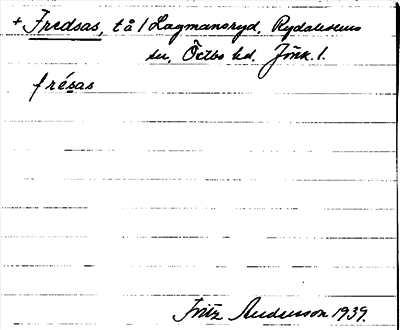 + Fredsas, t å l Lagmansryd, Rydaholms
sn, Östbo hd. Jönk. l.
frésas
Fritz Andersson 1939.